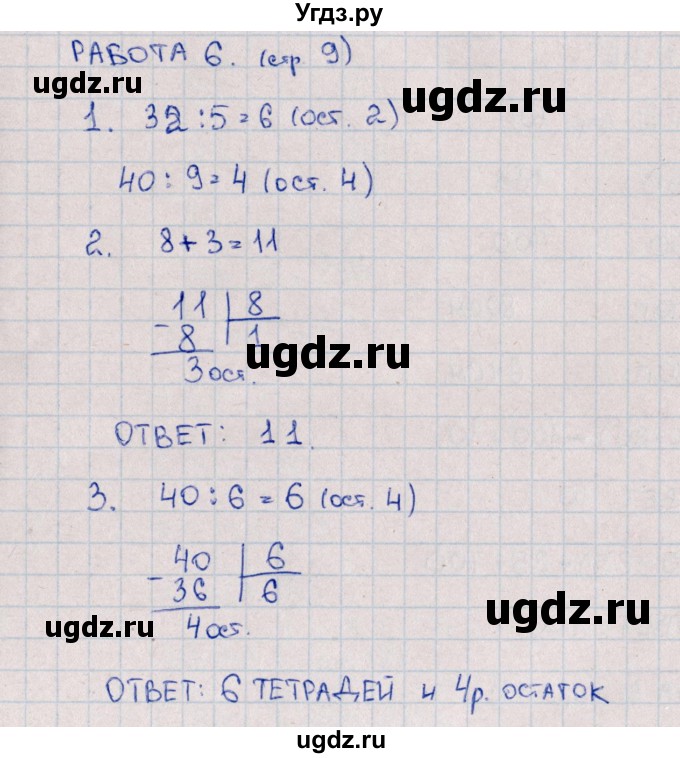 Угдз.ру
РАБОТА 6. (стр. 9)
ugdz.ru
ugdz.ru
1. 32 : 5 = 6 (ост. 2)
40 : 9 = 4 (ост. 4)
2. 8 + 3 = 11
11 | 8
- 8 | 1
ugdz.ru
3 ост.
ОТВЕТ: 11.
3. 40 : 6 = 6 (ост. 4)
40 | 6
- 36 | 6
ugdz.ru
4 ост.
ugdz.ru
ОТВЕТ: 6 ТЕТРАДЕЙ и 4р. ОСТАТОК
ugdz.ru